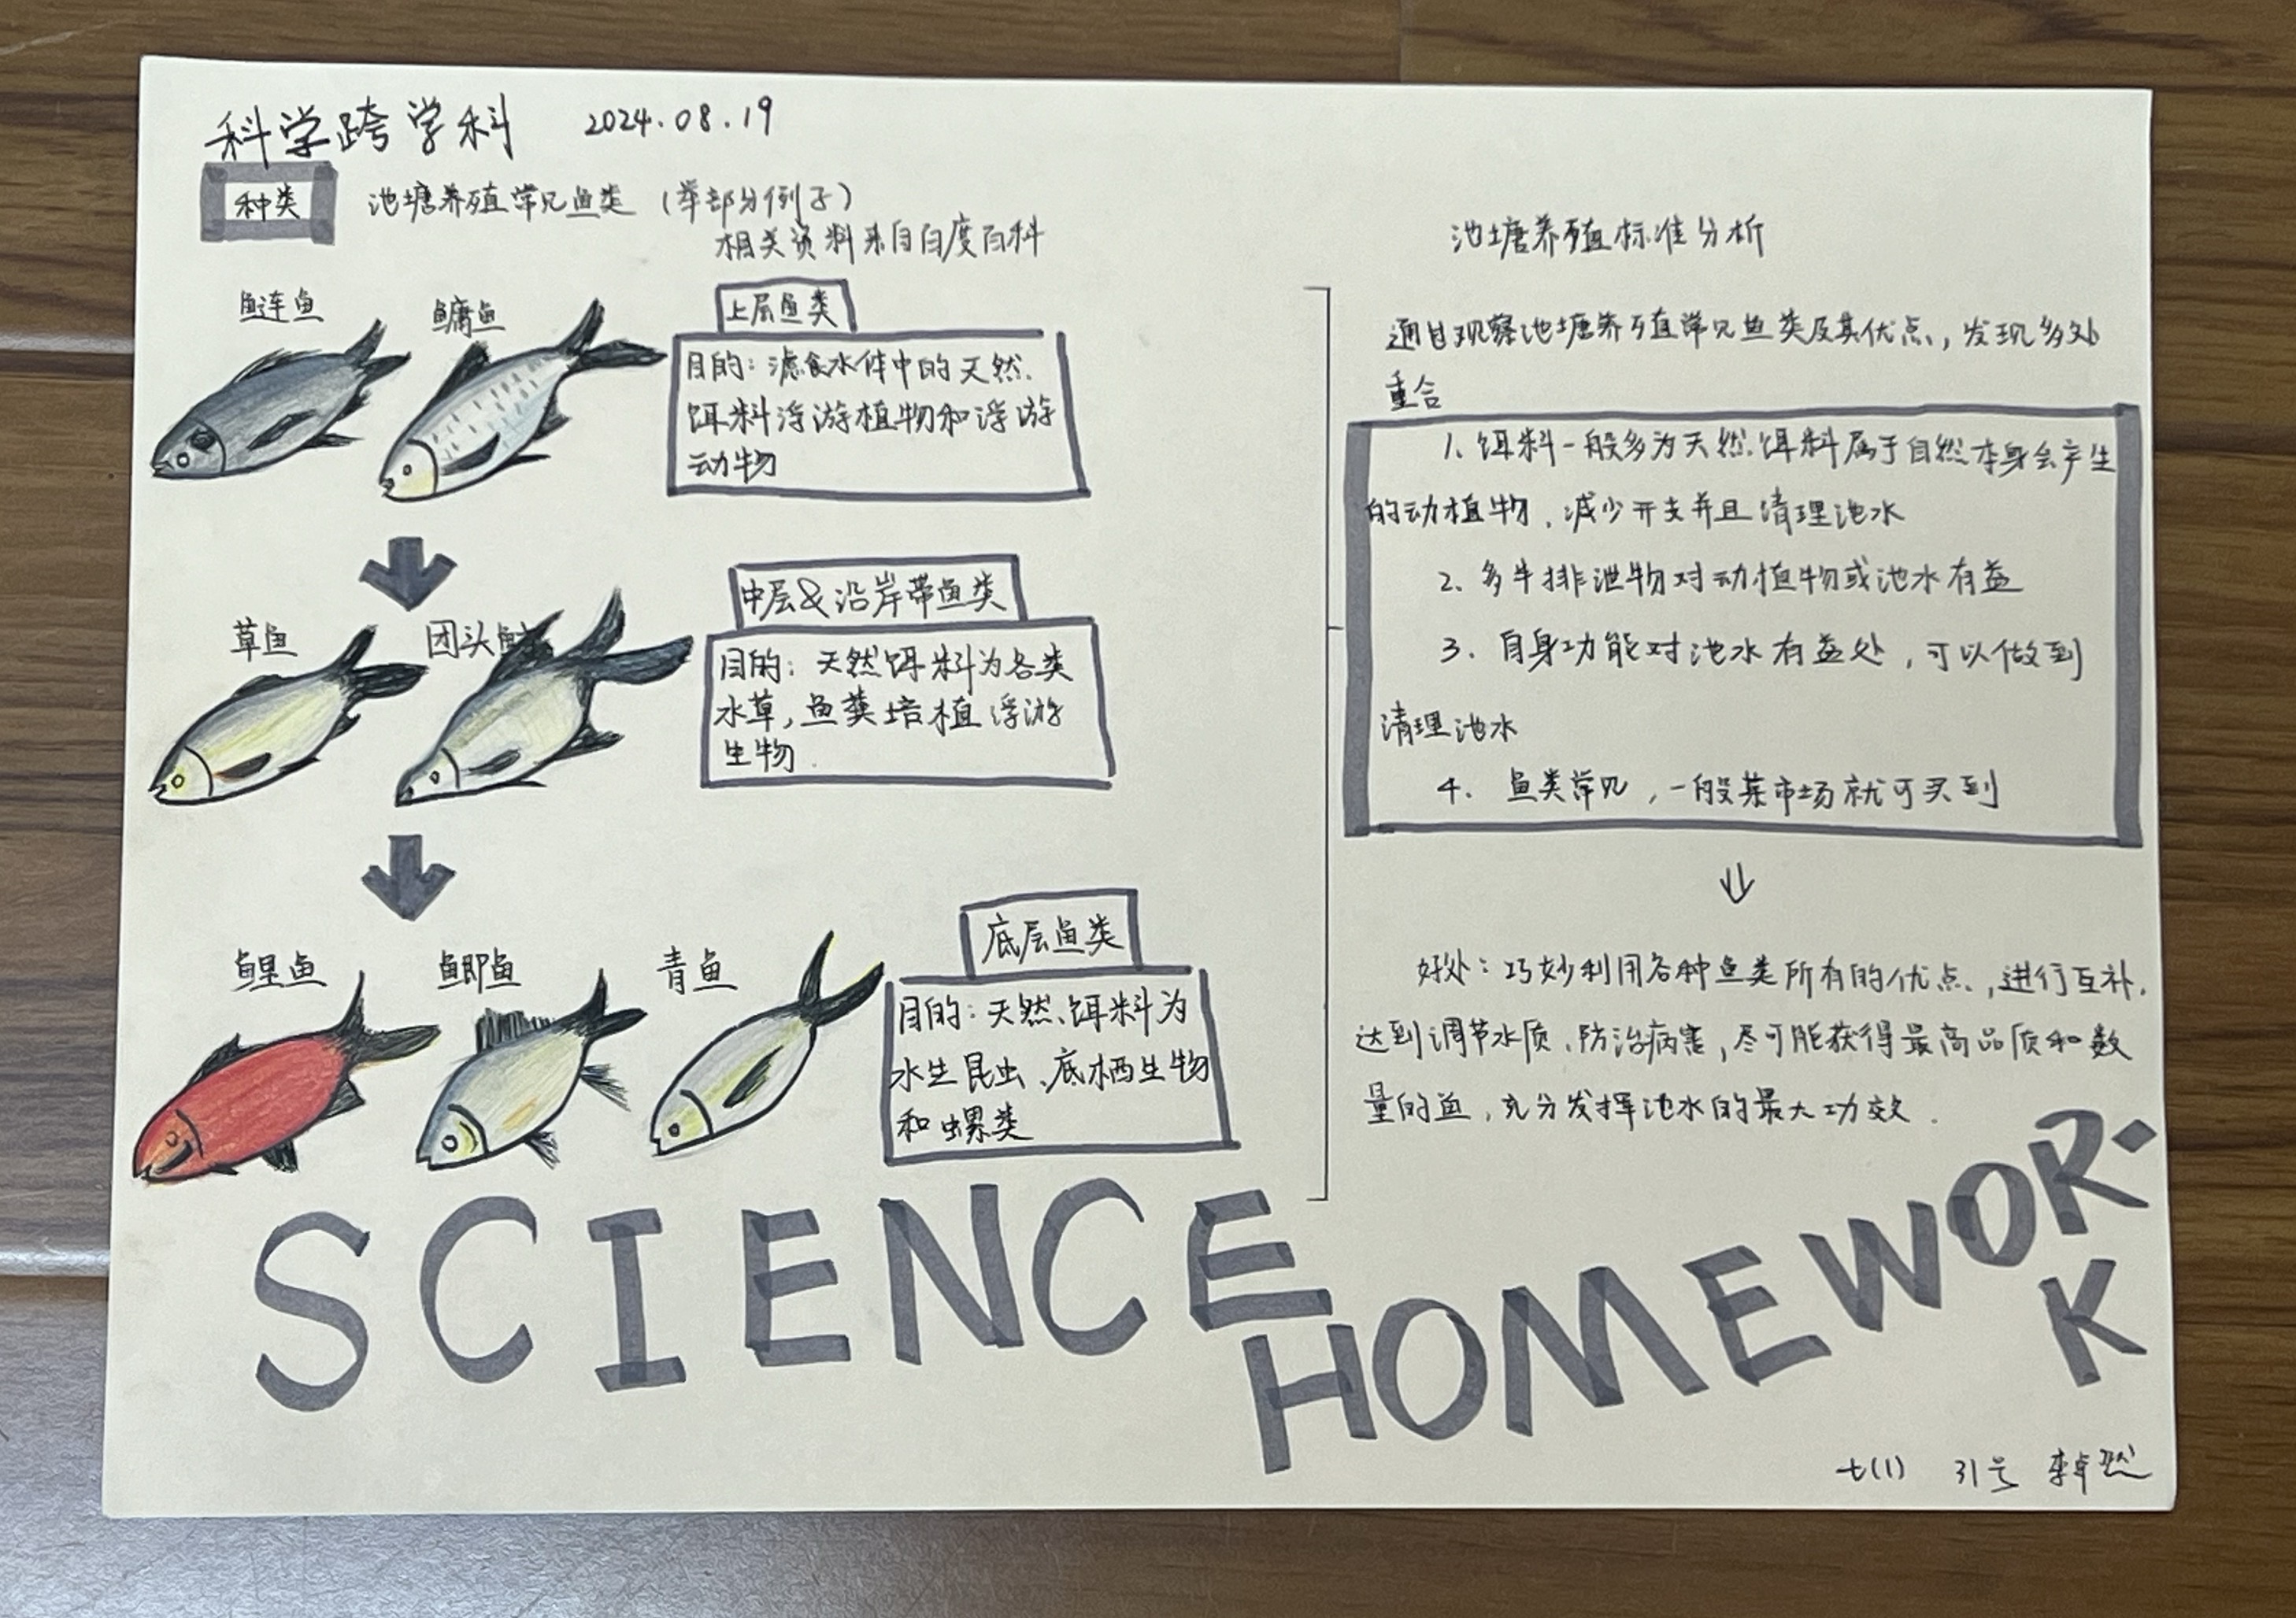 科学跨学科 2024.08.19
种类 池塘养殖常见鱼类（举部分例子）
相关资料来自百度百科
鲢鱼 鳙鱼
上层鱼类
目的：滤食水体中的天然
饵料浮游植物和浮游
动物
草鱼 团头鲂
中层&沿岸带鱼类
目的：天然饵料为各类
水草，鱼粪培植浮游
生物.
鲤鱼 鲫鱼 青鱼
底层鱼类
目的：天然饵料为
水生昆虫、底栖生物
和螺类
池塘养殖标准分析
通过观察池塘养殖常见鱼类及其优点，发现多处
重合
1. 饵料一般多为天然饵料属于自然本身会产生
的动植物，减少开支并且清理池水
2. 多半排泄物对动植物或池水有益
3. 自身功能对池水有益处，可以做到
清理池水
4. 鱼类常见，一般菜市场就可买到
好处：巧妙利用各种鱼类所有的优点，进行互补，
达到调节水质、防治病害，尽可能获得最高品质和数
量的鱼，充分发挥池水的最大功效.
SCIENCE
HOMEWOR-
K
七(1) 31号 李卓然